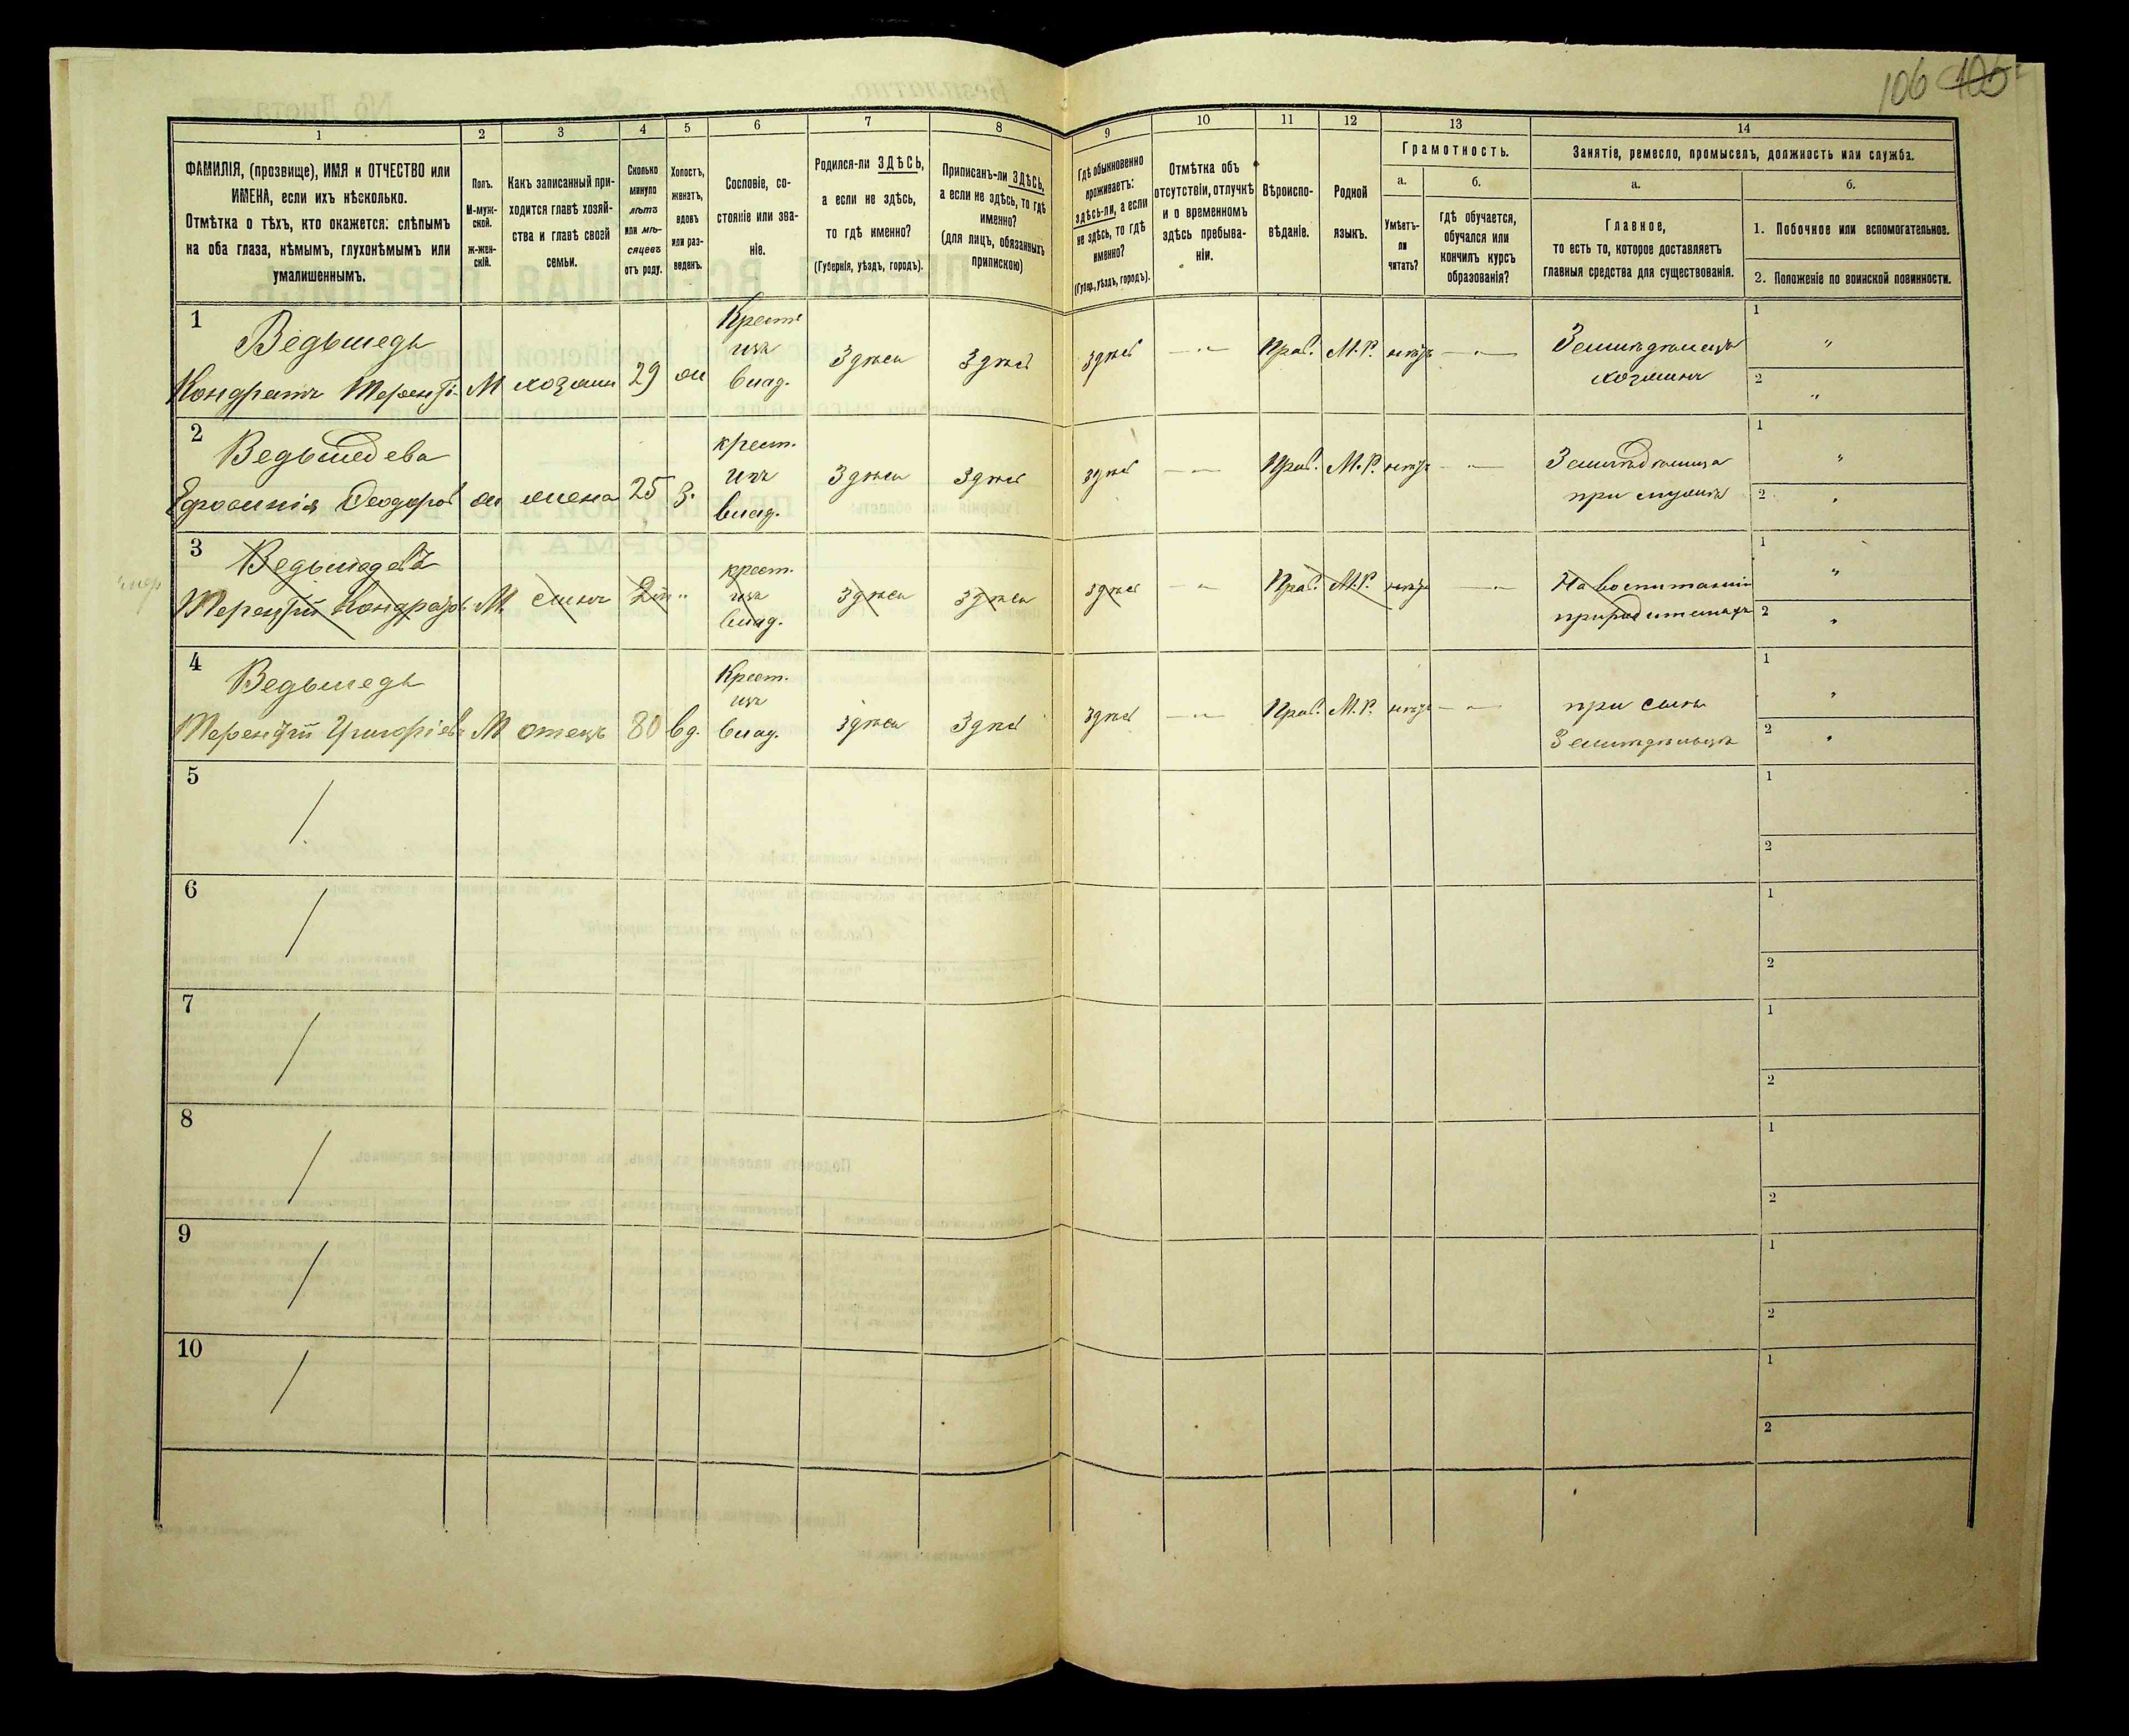 106 105
1 2 3 4 5 6 7 8 9 10 11 12 13 14
ФАМИЛІЯ, (прозвище), ИМЯ и ОТЧЕСТВО или
ИМЕНА, если ихъ нѣсколько.
Отмѣтка о тѣхъ, кто окажется: слѣпымъ
на оба глаза, нѣмымъ, глухонѣмымъ или
умалишеннымъ.
Полъ.
М-муж-
ской.
ж-жен-
скій.
Какъ записанный при-
ходится главѣ хозяй-
ства и главѣ своей
семьи.
Сколько
минуло
лѣтъ
или мѣ-
сяцевъ
отъ роду.
Холостъ,
женатъ,
вдовъ
или раз-
веденъ.
Сословіе, со-
стояніе или зва-
ніе.
Родился-ли ЗДѢСЬ,
а если не здѣсь,
то гдѣ именно?
(Губернія, уѣздъ, городъ).
Приписанъ-ли ЗДѢСЬ,
а если не здѣсь, то гдѣ
именно?
(для лицъ, обязанныхъ
припискою)
Гдѣ обыкновенно
проживаетъ:
здѣсь-ли, а если
не здѣсь, то гдѣ
именно?
(Губер., уѣздъ, городъ).
Отмѣтка объ
отсутствіи, отлучкѣ
и о временномъ
здѣсь пребыва-
ніи.
Вѣроиспо-
вѣданіе.
Родной
языкъ.
Грамотность.
а.
Умѣетъ-
ли
читать?
б.
гдѣ обучается,
обучался или
кончилъ курсъ
образованія?
Занятіе, ремесло, промыселъ, должность или служба.
а.
Главное,
то есть то, которое доставляетъ
главныя средства для существованія.
б.
1. Побочное или вспомогательное.
2. Положеніе по воинской повинности.
1
Ведьмедь
Кондратъ Терентi- М хозяин 29 ж
Крест
изъ
влад.
Здѣсь Здѣсь здѣсь — „ — Прав. М.Р. нѣтъ — „ —
Земледѣлецъ
хозяинъ
1 „
2 „
2
Ведьмедева
Ефросинія Феодоров ж жена 25 з.
крест.
изъ
влад.
Здѣсь Здѣсь здѣсь — „ — Прав. М.Р. нѣтъ — „ —
Земледѣлица
при мужѣ
1 „
2 „
3
Ведьмедевъ
Терентій Кондратов М. сынъ „
крест.
изъ
влад.
здѣсь здѣсь здѣсь — „ Прав. М.Р. нѣтъ — „ —
На воспитаніи
при родителяхъ
1 „
2 „
4
Ведьмедь
Терентій Григоріевъ М отецъ 80 вд.
Крест.
изъ
влад.
здѣсь Здѣсь здѣсь — „ — Прав. М.Р. нѣтъ — „ —
при сынѣ
Земледѣлецъ
1 „
2 „
5 1
2
6 1
2
7 1
2
8 1
2
9 1
2
10 1
2